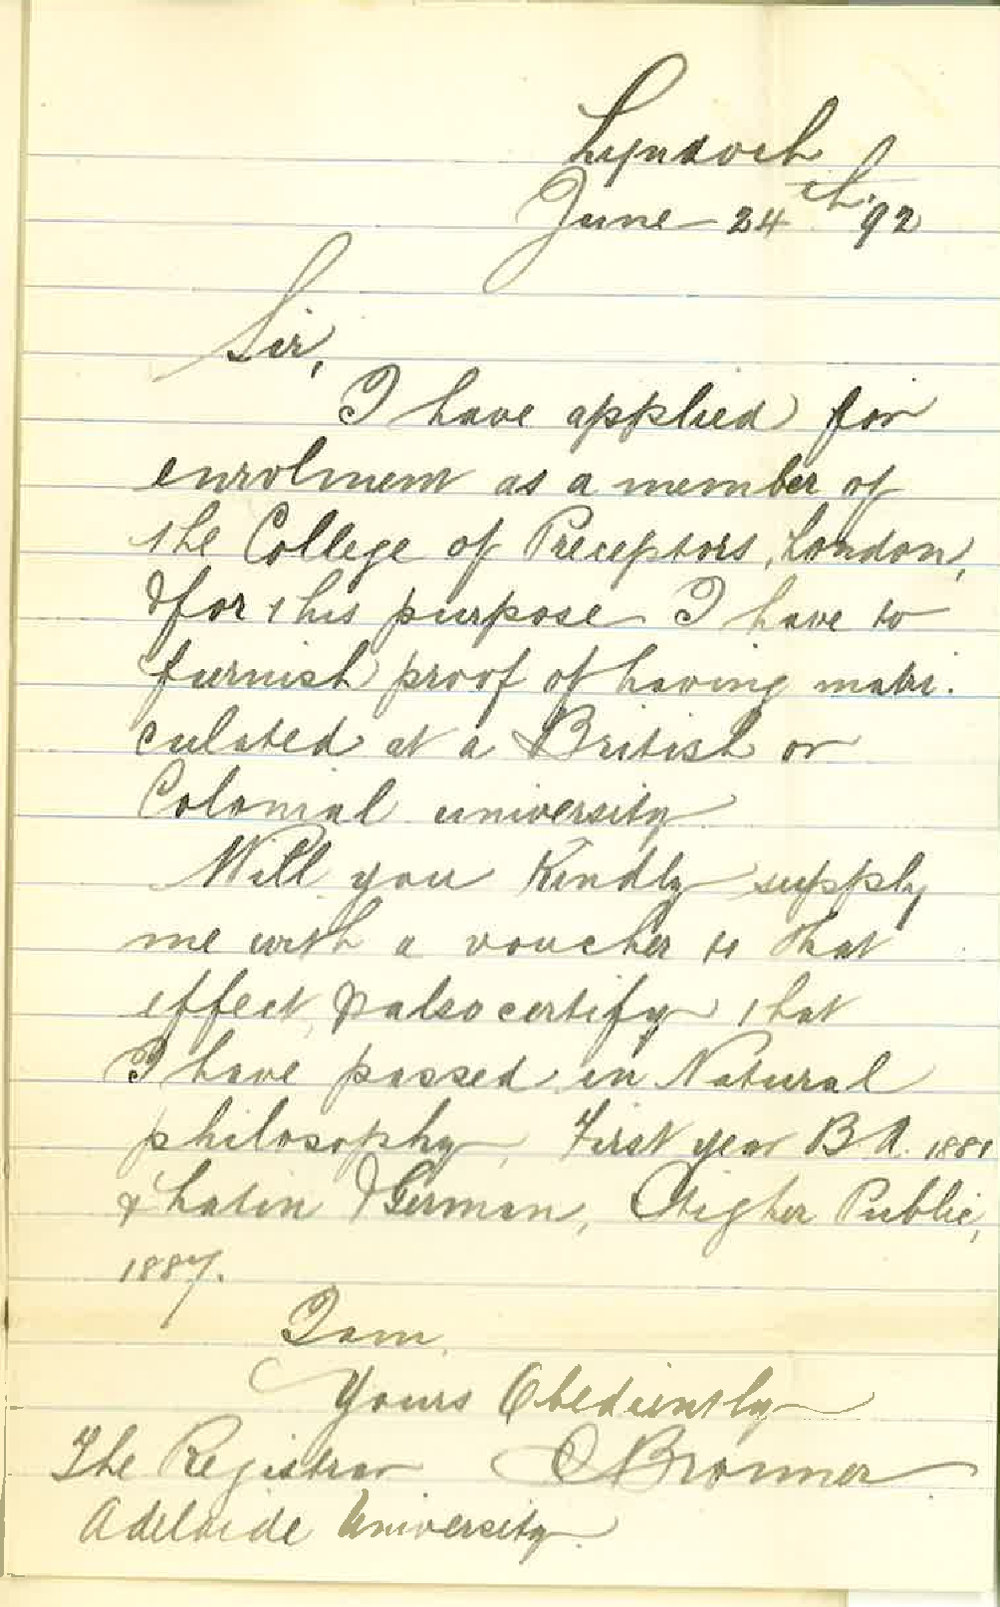 Lyndoch
June 24th '92
Sir,
I have applied for
enrolment as a member of
the College of Preceptors, London,
& for this purpose I have to
furnish proof of having matri-
culated at a British or
Colonial university
Will you kindly supply
me with a voucher to that
effect, & also certify that
I have passed in Natural
philosophy, First year B.A. 1881
& Latin & German, Higher Public,
1887.
I am,
Yours Obediently
The Registrar
Adelaide University.